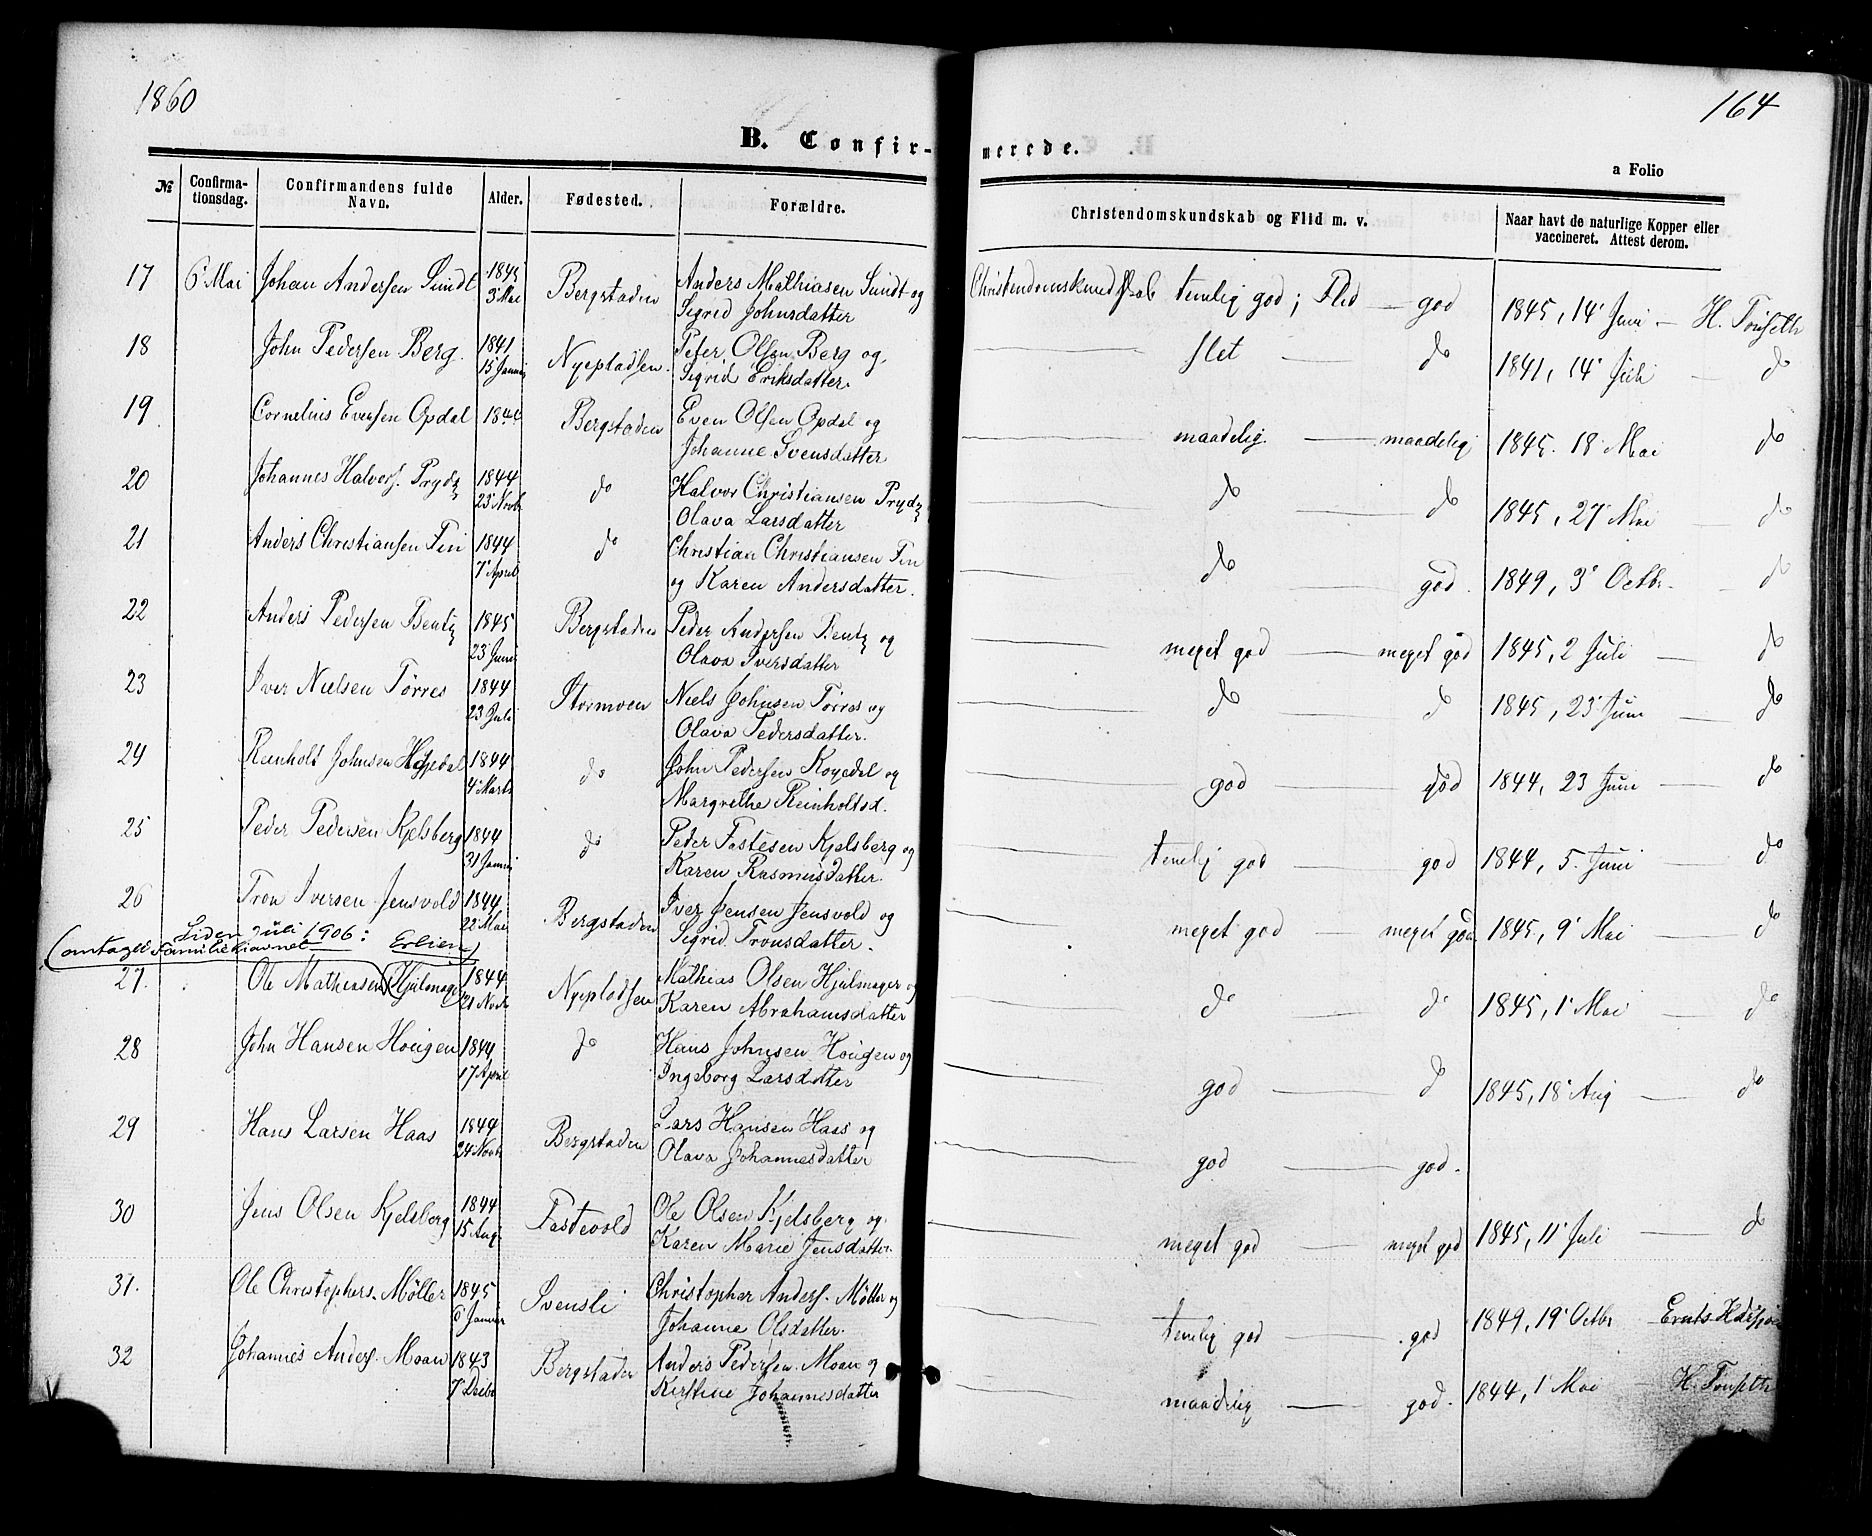 1860
164
B. Confir- merede.
a Folio
№ Confirmationsdag. Confirmandens fulde Navn. Alder. Fødested. Forældre. Christendomskundskab og Flid m. v. Naar havt de naturlige Kopper eller vaccineret. Attest derom.
17 6' Mai Johan Andersen Sundt 1845 Bergstaden Anders Mathiasen Sundt og Christendomskundskab temlig god; Flid — god 1845, 14' Juni — H. Tønseth
3' Mai Sigrid Johnsdatter
18 John Pedersen Berg. 1841 Nyepladsen. Peter Olsen Berg og slet — do 1841, 14' Juli — do
15 Januar Sigrid Eriksdatter.
19 Cornelius Evensen Opdal 1844 Bergstaden Even Olsen Opdal og maadelig. — maadelig 1845. 18' Mai do
Johanne Svensdatter
20 Johannes Halvors. Prydz 1844 do Halvor Christiansen Prydz do — do 1845, 27' Mai — do
23' Novbr Olava Larsdatter
21 Anders Christiansen Fin 1844 do Christian Christiansen Fin do — god. 1849, 3' Octbr. — do
7' April og Karen Andersdatter.
22 Anders Pedersen Bentz 1845 Bergstaden Peder Andersen Bentz og meget god — meget god 1845, 2 Juli — do
23' Juni Olava Iversdatter
23 Iver Nielsen Tørres 1844 Stormoen Niels Johnsen Tørres og do — do 1845, 23' Juni — do
23' Juli Olava Pedersdatter.
24 Reinholt Johnsen 1844 do John Pedersen Koyedal og god — god 1844, 23 Juni — do
4' Marts Margrethe Reinholtsd.
25 Peder Pedersen Kjelsberg 1844 do Peder Fastesen Kjelsberg og temlig god — god 1844, 5. Juni — do
31 Januar Karen Rasmusdatter.
26 Tron Iversen Jensvold 1844 Bergstaden Iver Jensen Jensvold og meget god — meget god 1845, 9' Mai — do
22' Mai Sigrid Tronsdatter.
Siden Juli 1906:
(antaget Familienavnet Erlien)
27. Ole Mathiesen (Hjulmager) 1844 Nyepladsen Mathias Olsen Hjulmager og do — do 1845, 1' Mai — do
21 Novbr Karen Abrahamsdatter
28 John Hansen Hougen 1844 do Hans Johnsen Hougen og god — do 1845, 18' Aug — do
17 April Ingeborg Larsdatter
29 Hans Larsen Haas 1844 Bergstaden Lars Hansen Haas og god — god.
24 Novbr Olava Johannesdatter
30 Jens Olsen Kjelsberg 1844 Fastevold Ole Olsen Kjelsberg og meget god — meget god 1845, 11' Juli — do
15 Aug. Karen Marie Jensdatter.
31. Ole Christophers. Möller 1845 Svensli Christopher Anders. Möller og temlig god — god 1849, 19' Octbr
6 Januar Johanne Olsdatter.
32 Johannes Anders. Moan 1843 Bergstaden Anders Pedersen Moan og maadelig — god. 1844, 1' Mai — H. Tønseth
7' Decbr Kirstine Johannesdatter